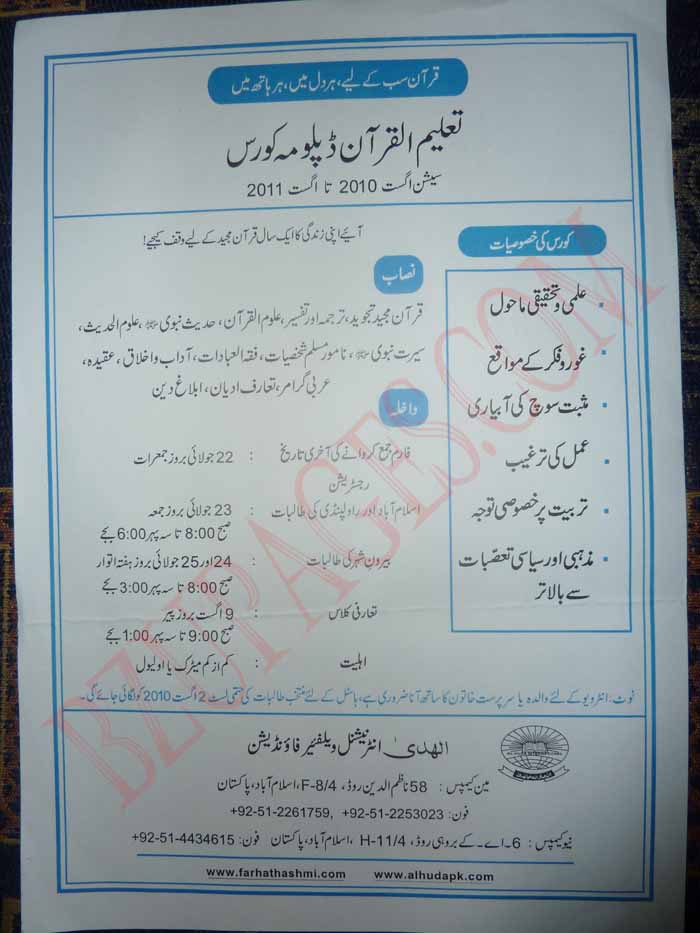 قرآن سب کے لیے، ہر دل میں، ہر ہاتھ میں
تعلیم القرآن ڈپلومہ کورس
سیشن اگست 2010 تا اگست 2011
کورس کی خصوصیات
علمی و تحقیقی ماحول
غور و فکر کے مواقع
مثبت سوچ کی آبیاری
عمل کی ترغیب
تربیت پر خصوصی توجہ
مذہبی اور سیاسی تعصّبات
سے بالاتر
آیئے اپنی زندگی کا ایک سال قرآن مجید کے لیے وقف کیجیے!
نصاب
قرآن مجید تجوید، ترجمہ اور تفسیر، علوم القرآن، حدیث نبوی ﷺ، علوم الحدیث،
سیرت نبوی ﷺ، نامور مسلم شخصیات، فقہ العبادات، آداب و اخلاق، عقیدہ،
عربی گرامر، تعارف ادیان، ابلاغ دین
داخلہ
فارم جمع کروانے کی آخری تاریخ : 22 جولائی بروز جمعرات
رجسٹریشن
اسلام آباد اور راولپنڈی کی طالبات : 23 جولائی بروز جمعہ
صبح 8:00 تا سہ پہر 6:00 بجے
بیرون شہر کی طالبات : 24 اور 25 جولائی بروز ہفتہ اتوار
صبح 8:00 تا سہ پہر 3:00 بجے
تعارفی کلاس : 9 اگست بروز پیر
صبح 9:00 تا سہ پہر 1:00 بجے
اہلیت : کم از کم میٹرک یا او لیول
نوٹ: انٹرویو کے لئے والدہ یا سرپرست خاتون کا ساتھ آنا ضروری ہے، ہاسٹل کے لئے منتخب طالبات کی حتمی لسٹ 2 اگست 2010 کو لگائی جائے گی۔
الھدیٰ انٹرنیشنل ویلفیئر فاؤنڈیشن
مین کیمپس : 58 ناظم الدین روڈ، F-8/4، اسلام آباد، پاکستان
فون: +92-51-2261759, +92-51-2253023
نیو کیمپس : 6۔اے۔کے بروہی روڈ، H-11/4، اسلام آباد، پاکستان فون: +92-51-4434615
www.farhathashmi.com www.alhudapk.com
BZUPAGES.COM